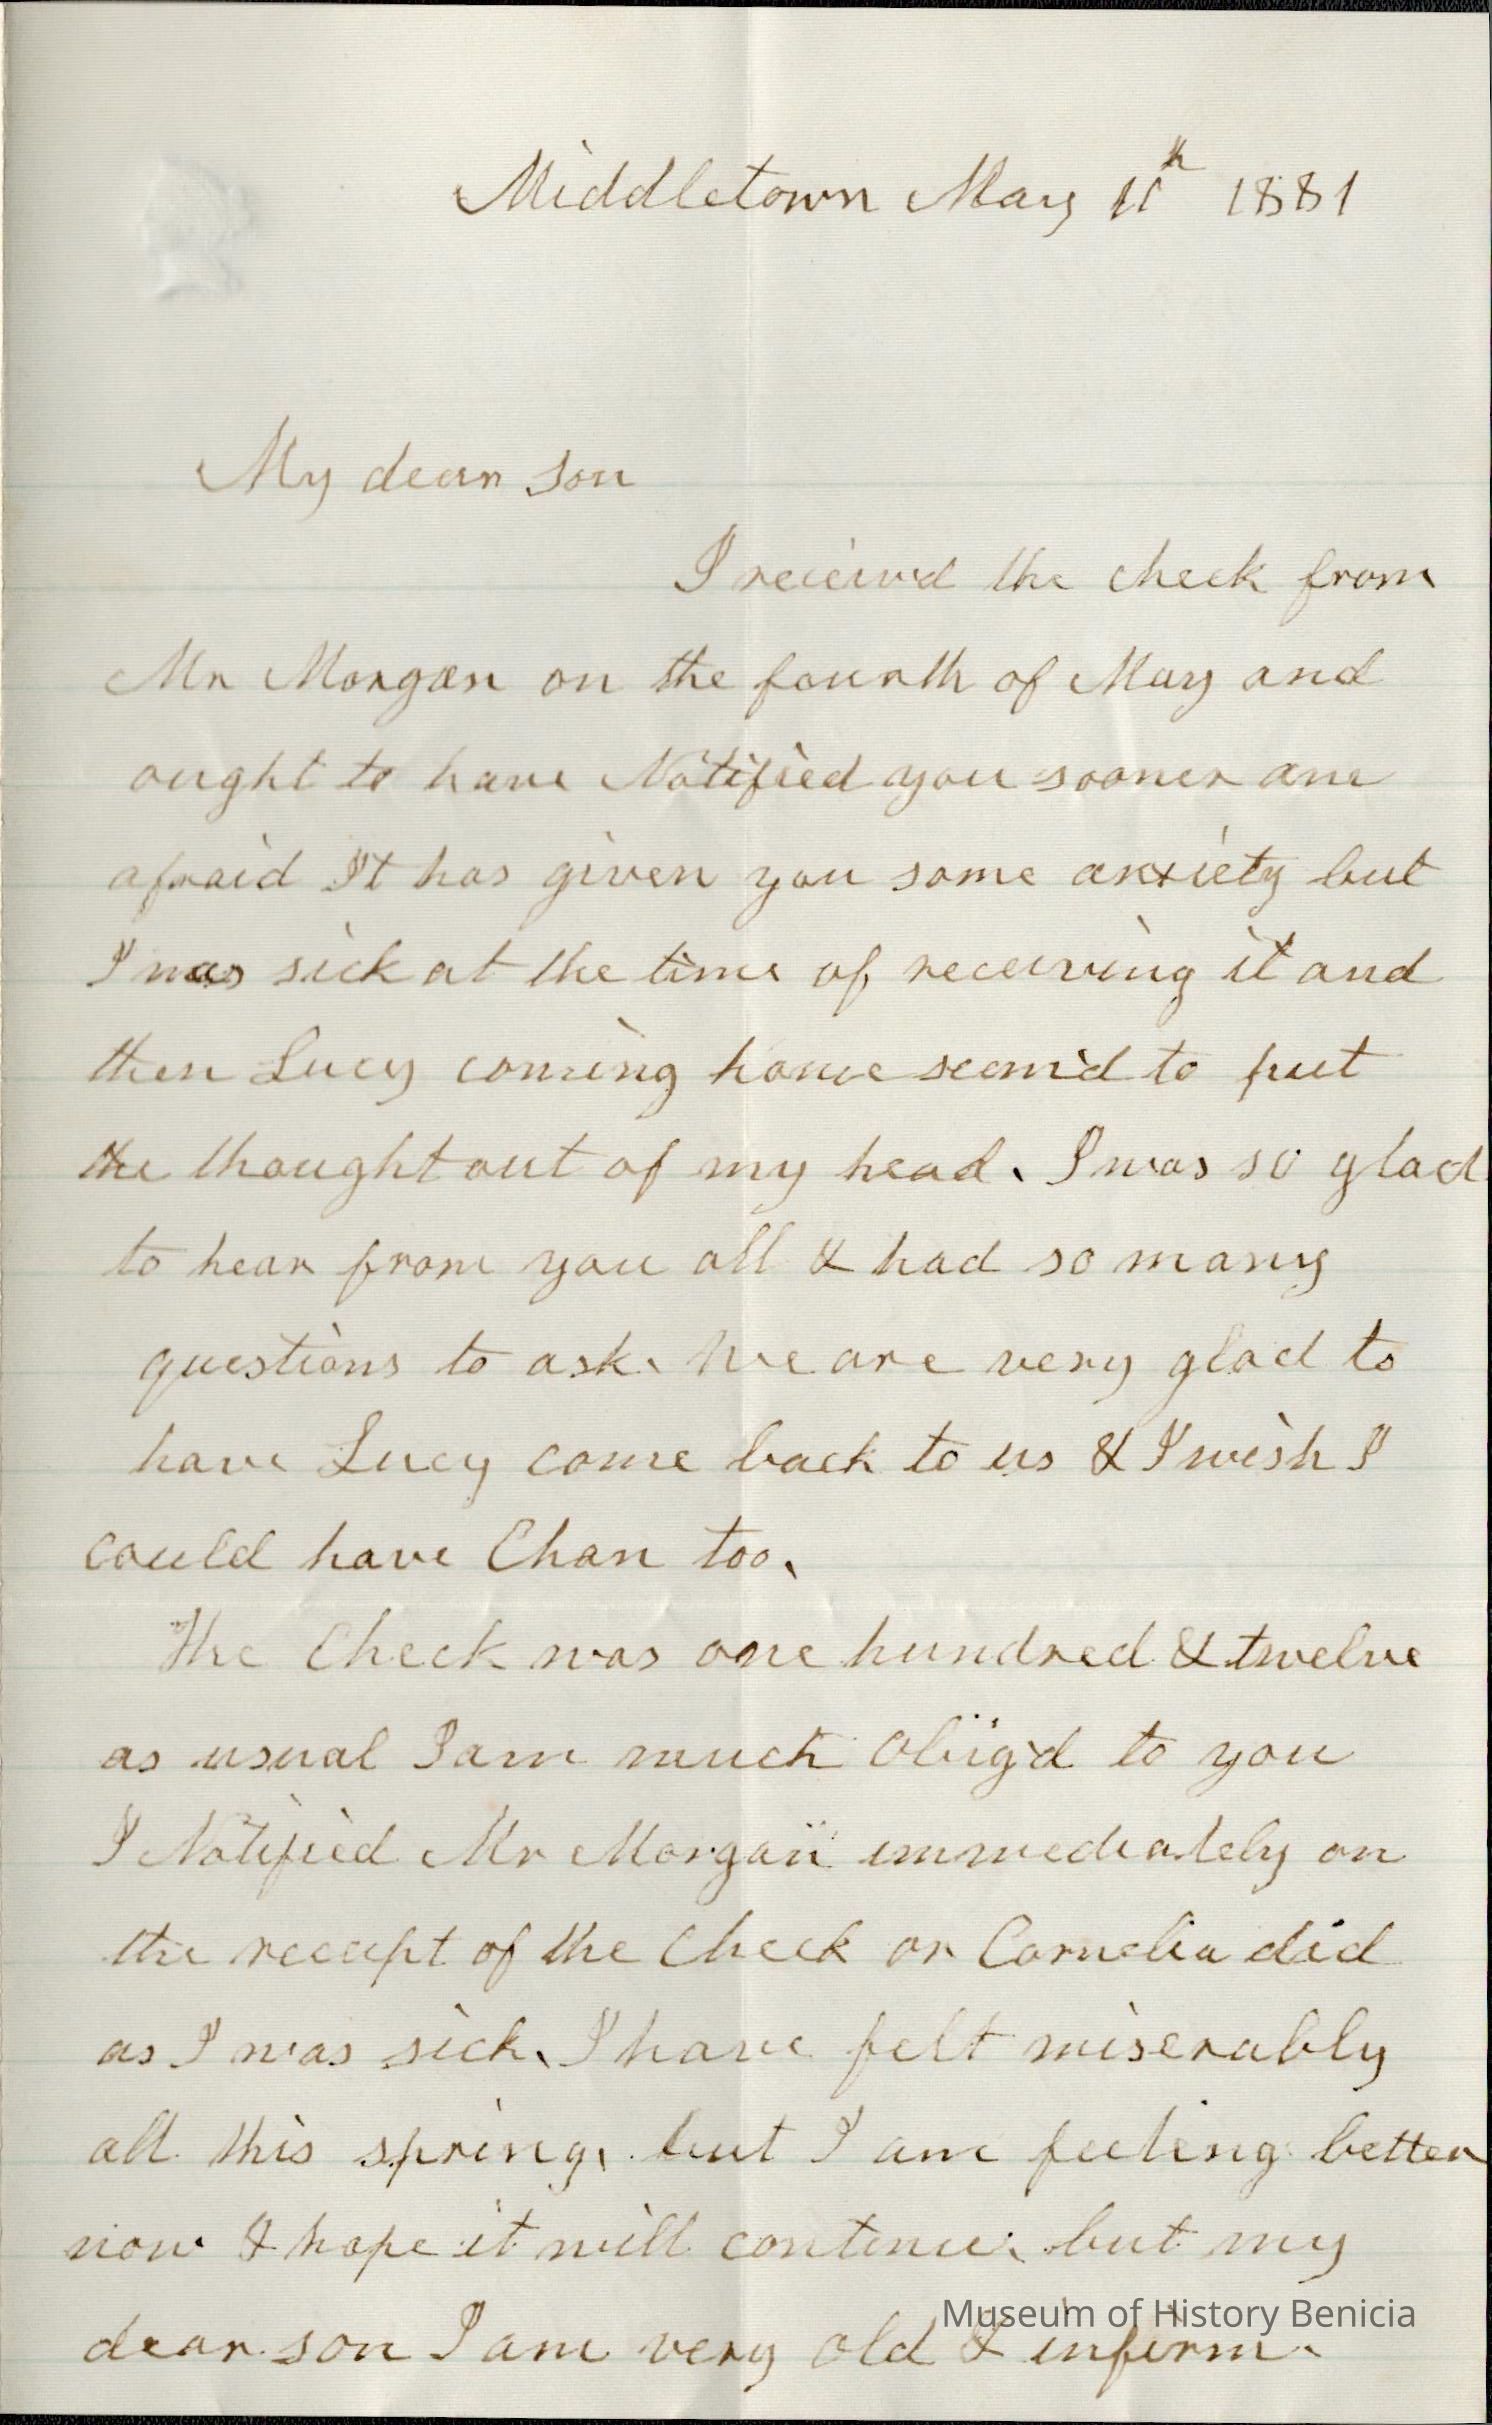 Middletown May 11th 1881
My dear son
I receiv'd the check from
Mr Morgan on the fourth of May and
ought to have Notified you sooner am
afraid It has given you some anxiety but
I was sick at the time of receiving it and
then Lucy coming home seem'd to put
the thought out of my head. I was so glad
to hear from you all & had so many
questions to ask. We are very glad to
have Lucy come back to us & I wish I
could have Chan too.
The Check was one hundred & twelve
as usual I am much Oblig'd to you
I Notified Mr Morgan immediately on
the receipt of the Check or Cornelia did
as I was sick. I have felt miserably
all this spring, but I am feeling better
now & hope it will continue. but my
dear son I am very old & infirm.
Museum of History Benicia